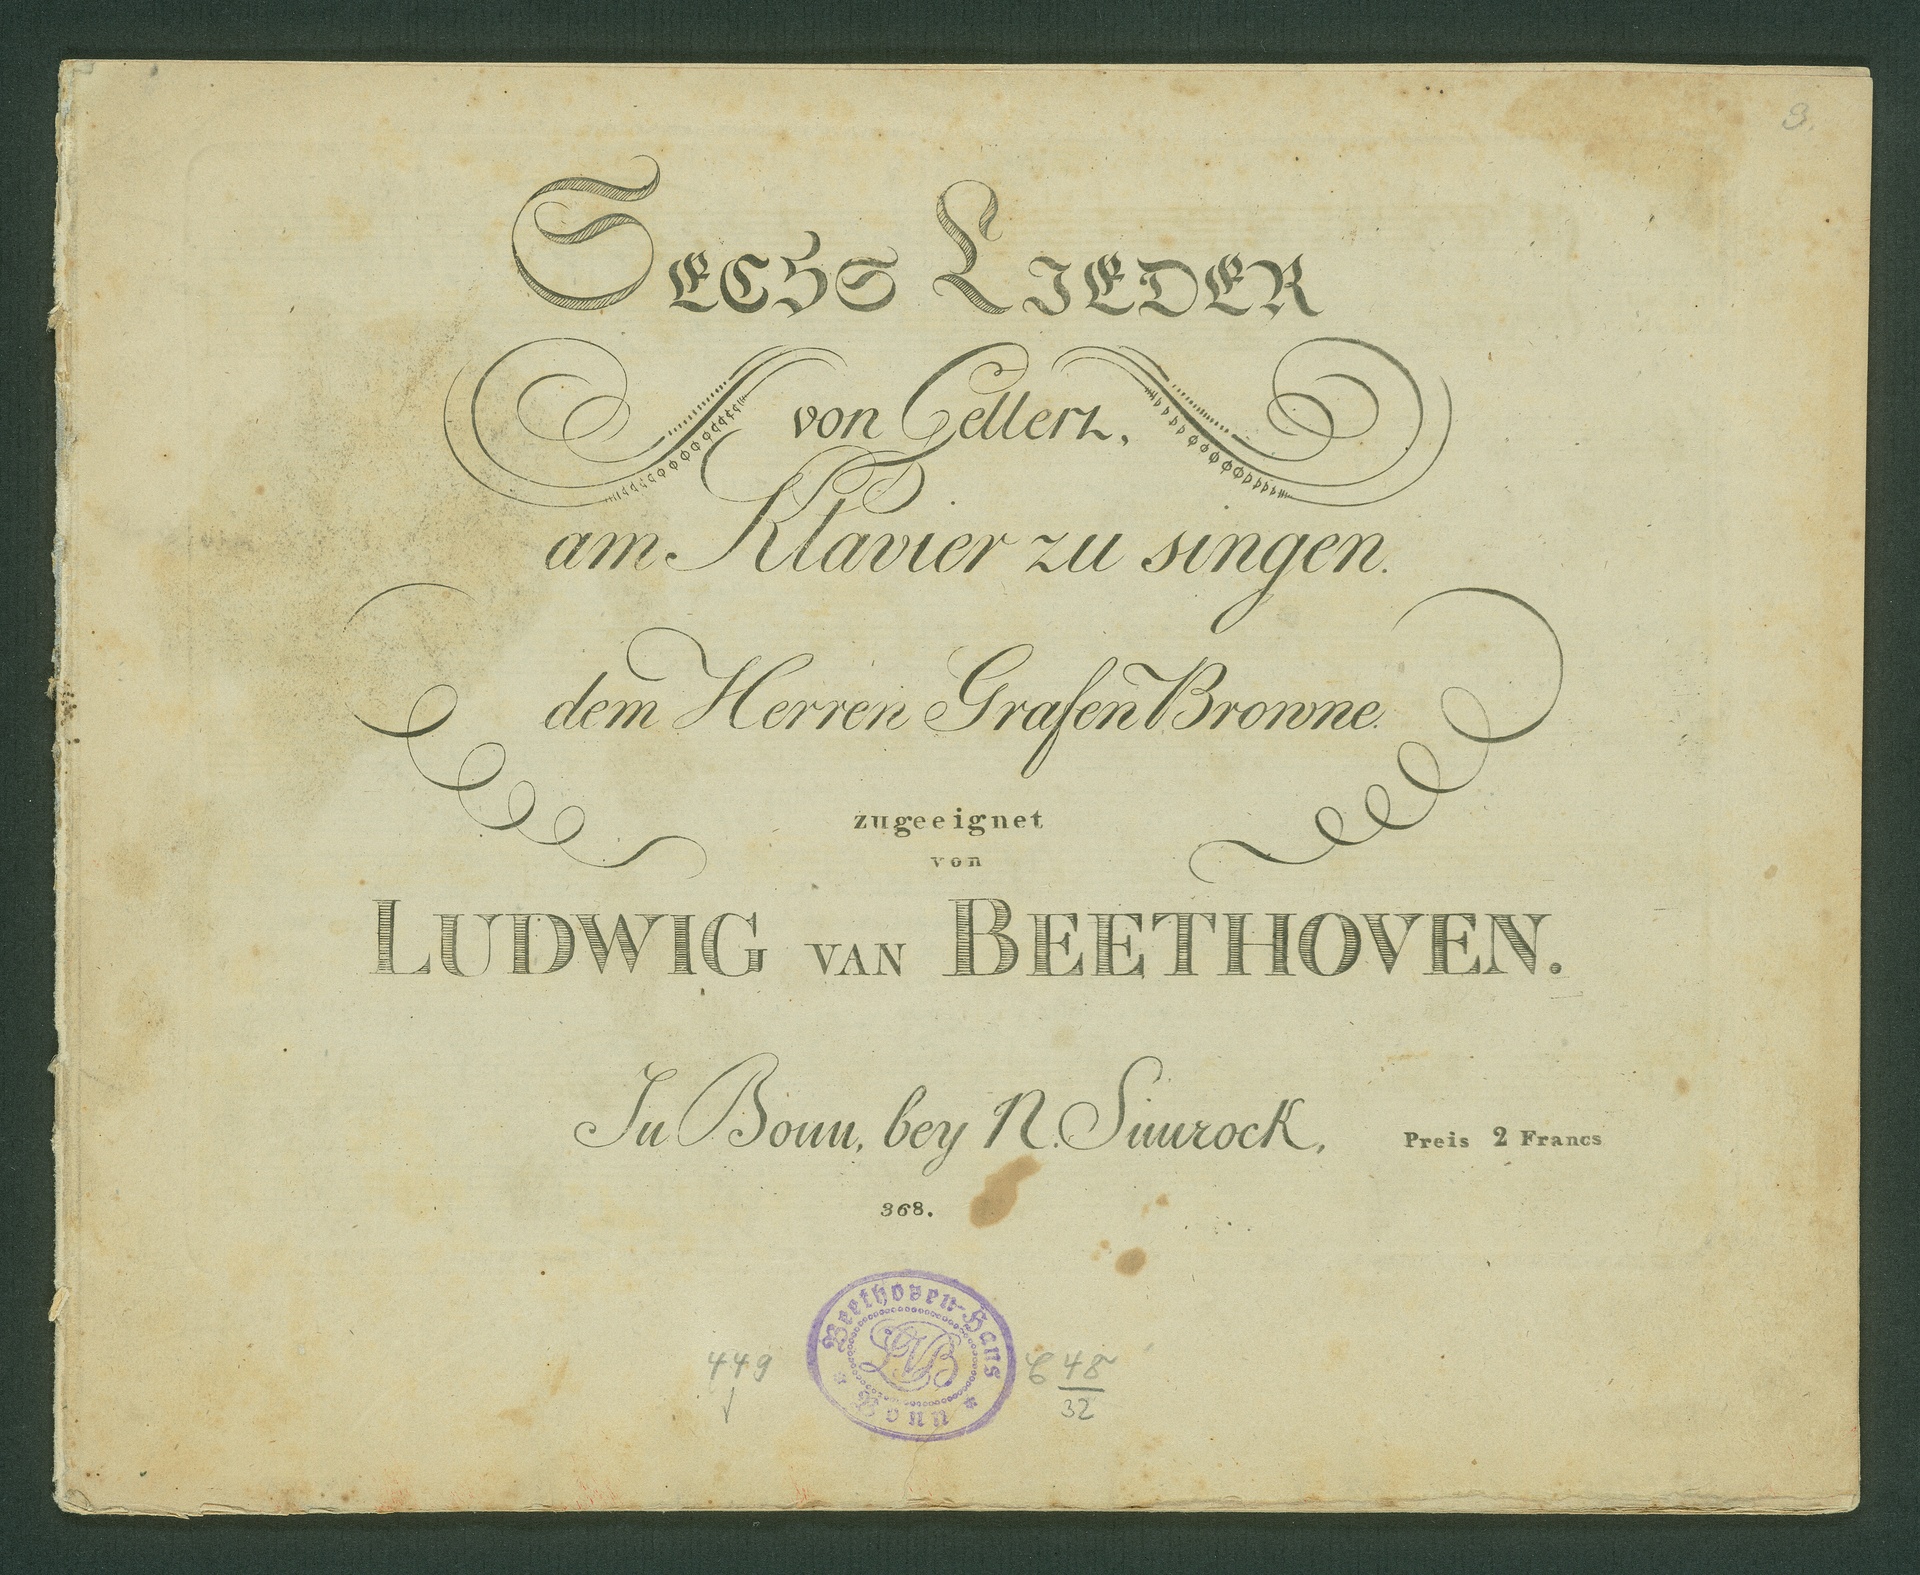 8.
SECHS LIEDER
von Gellert.
am Klavier zu singen.
dem Herren Grafen Browne.
zugeeignet
von
LUDWIG VAN BEETHOVEN.
In Bonn, bey N. Simrock.
Preis 2 Francs
368.
Beethoven-Haus
LVB
Bonn
449
C 48
32